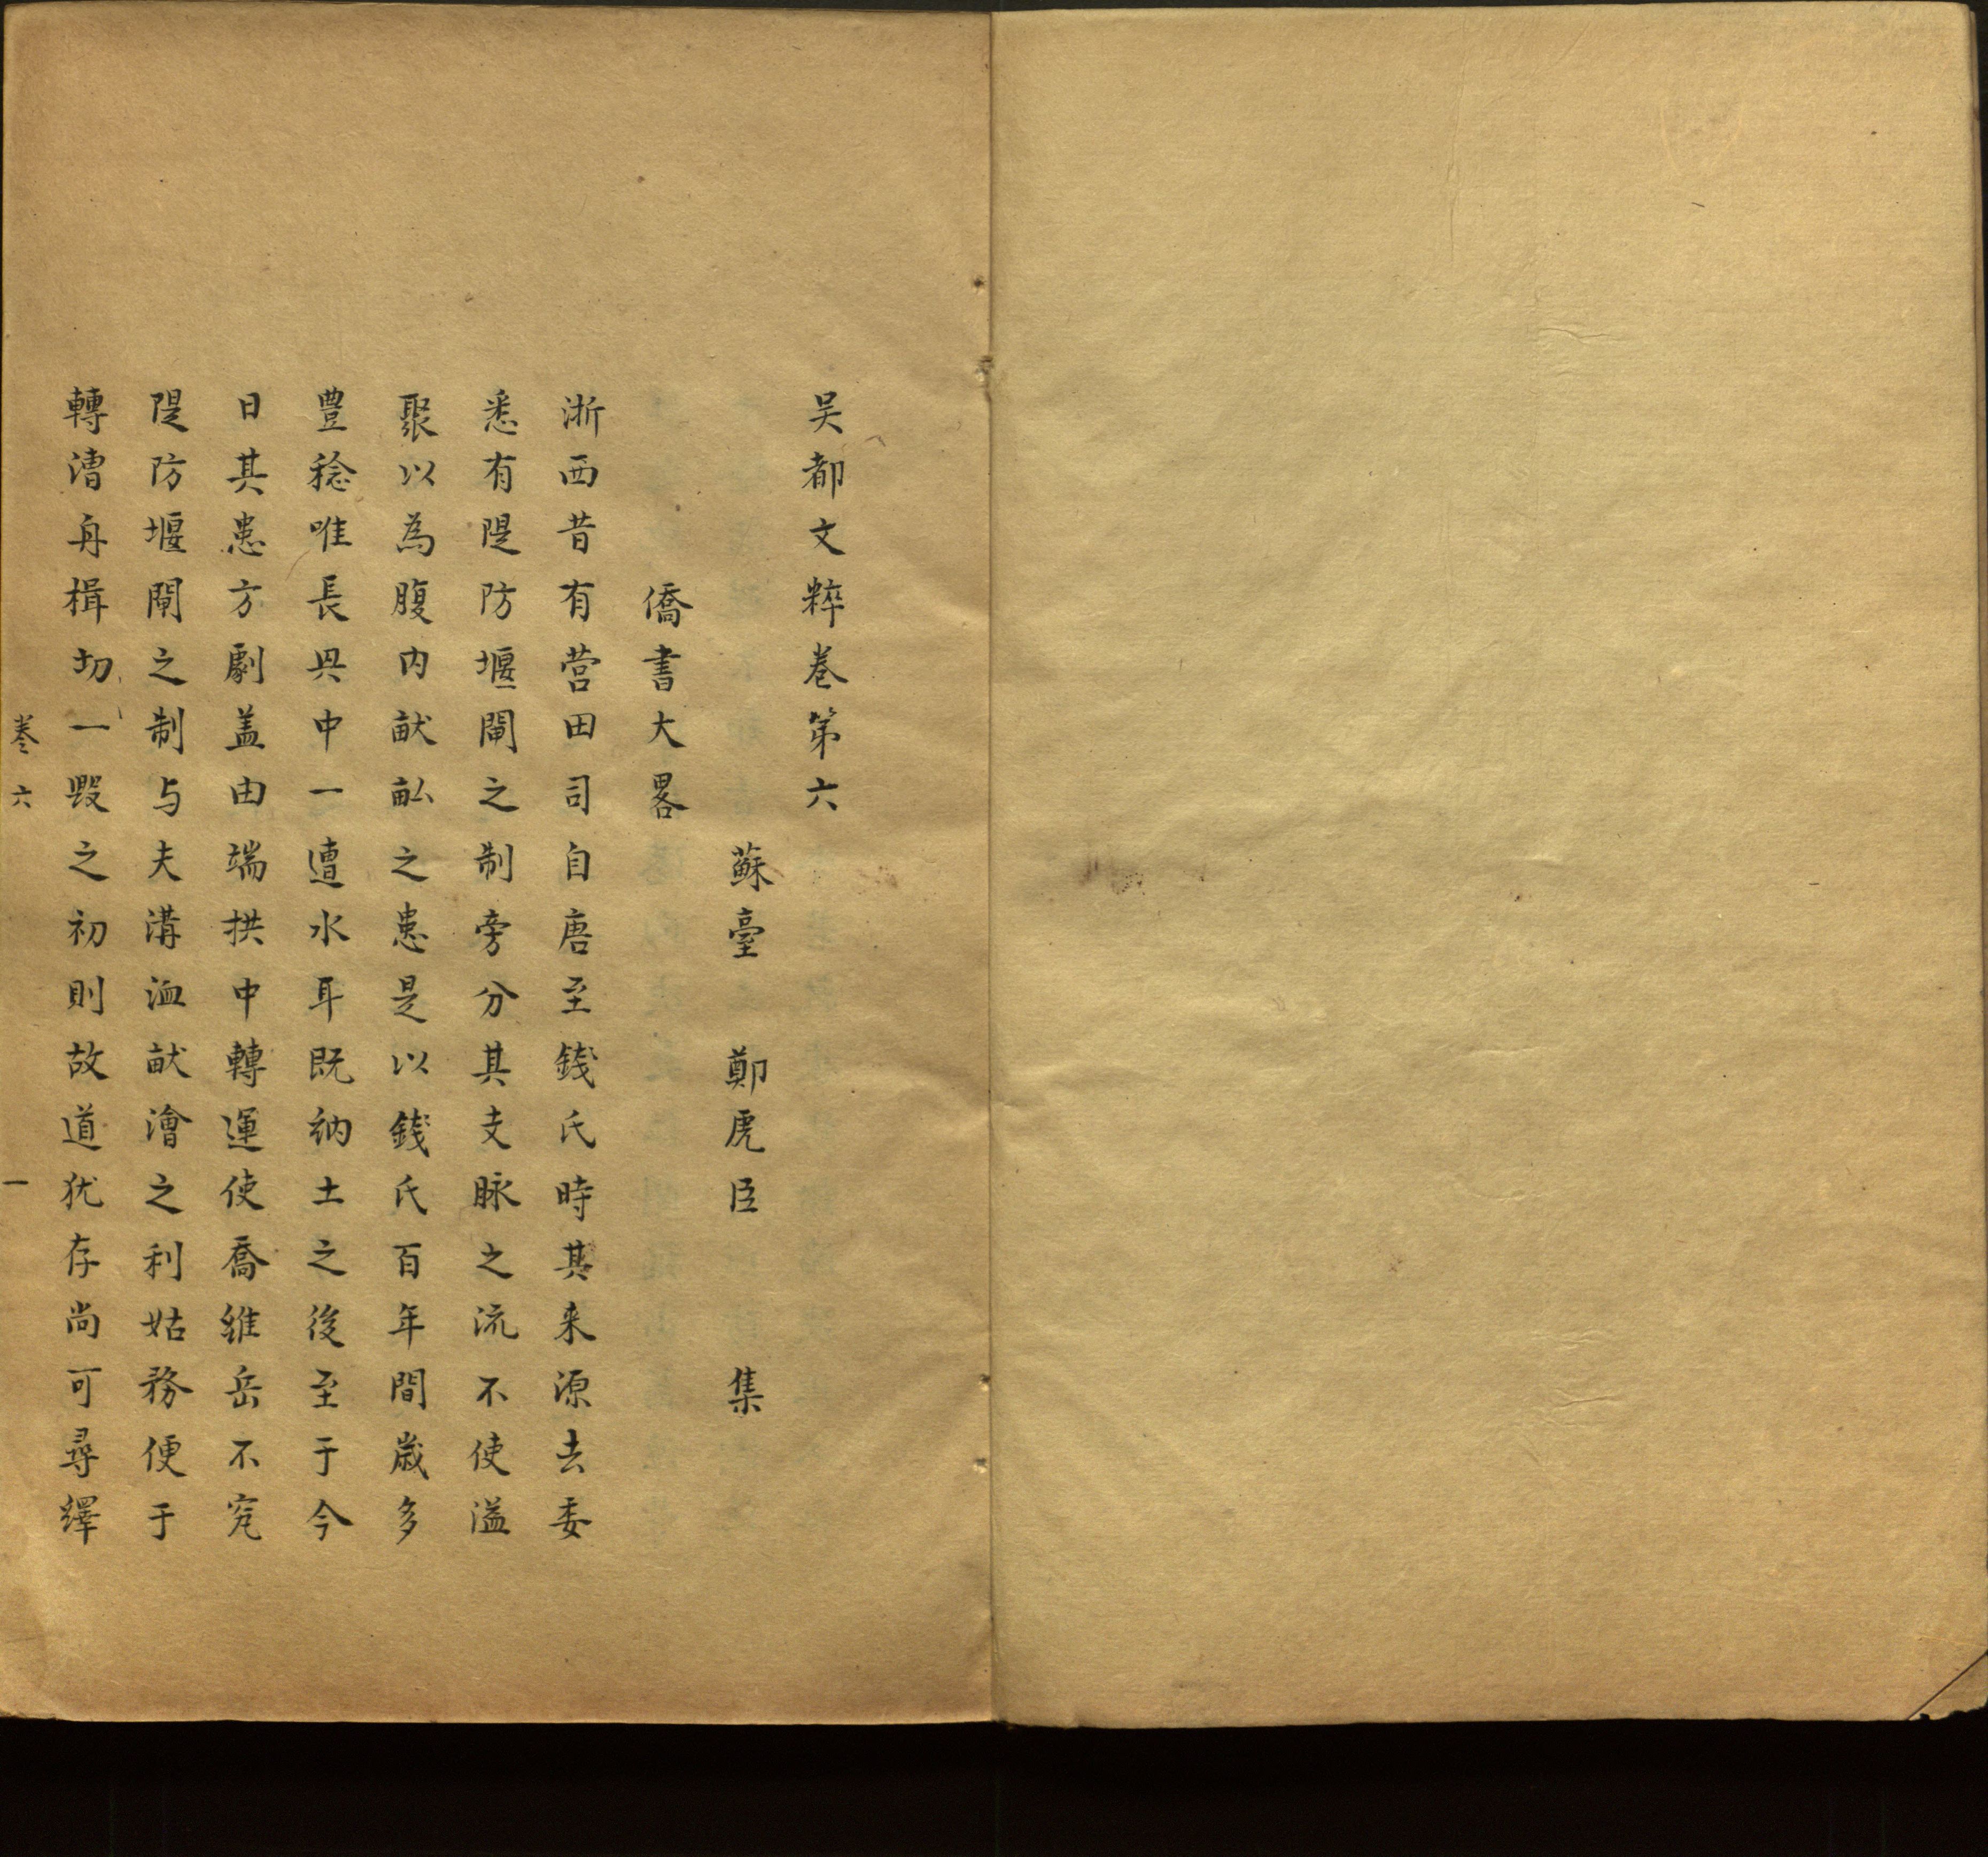 吴都文粹卷第六
蘇臺　鄭虎臣　　集
僑書大畧
浙西昔有营田司自唐至錢氏時其来源去委
悉有隄防堰閘之制旁分其支脉之流不使溢
聚以為腹内畎畆之患是以錢氏百年間歲多
豊稔唯長興中一遭水耳既納土之後至于今
日其患方劇盖由端拱中轉運使喬維岳不究
隄防堰閘之制与夫溝洫畎澮之利姑務便于
轉漕舟楫切一毀之初則故道犹存尚可尋繹
卷六
一